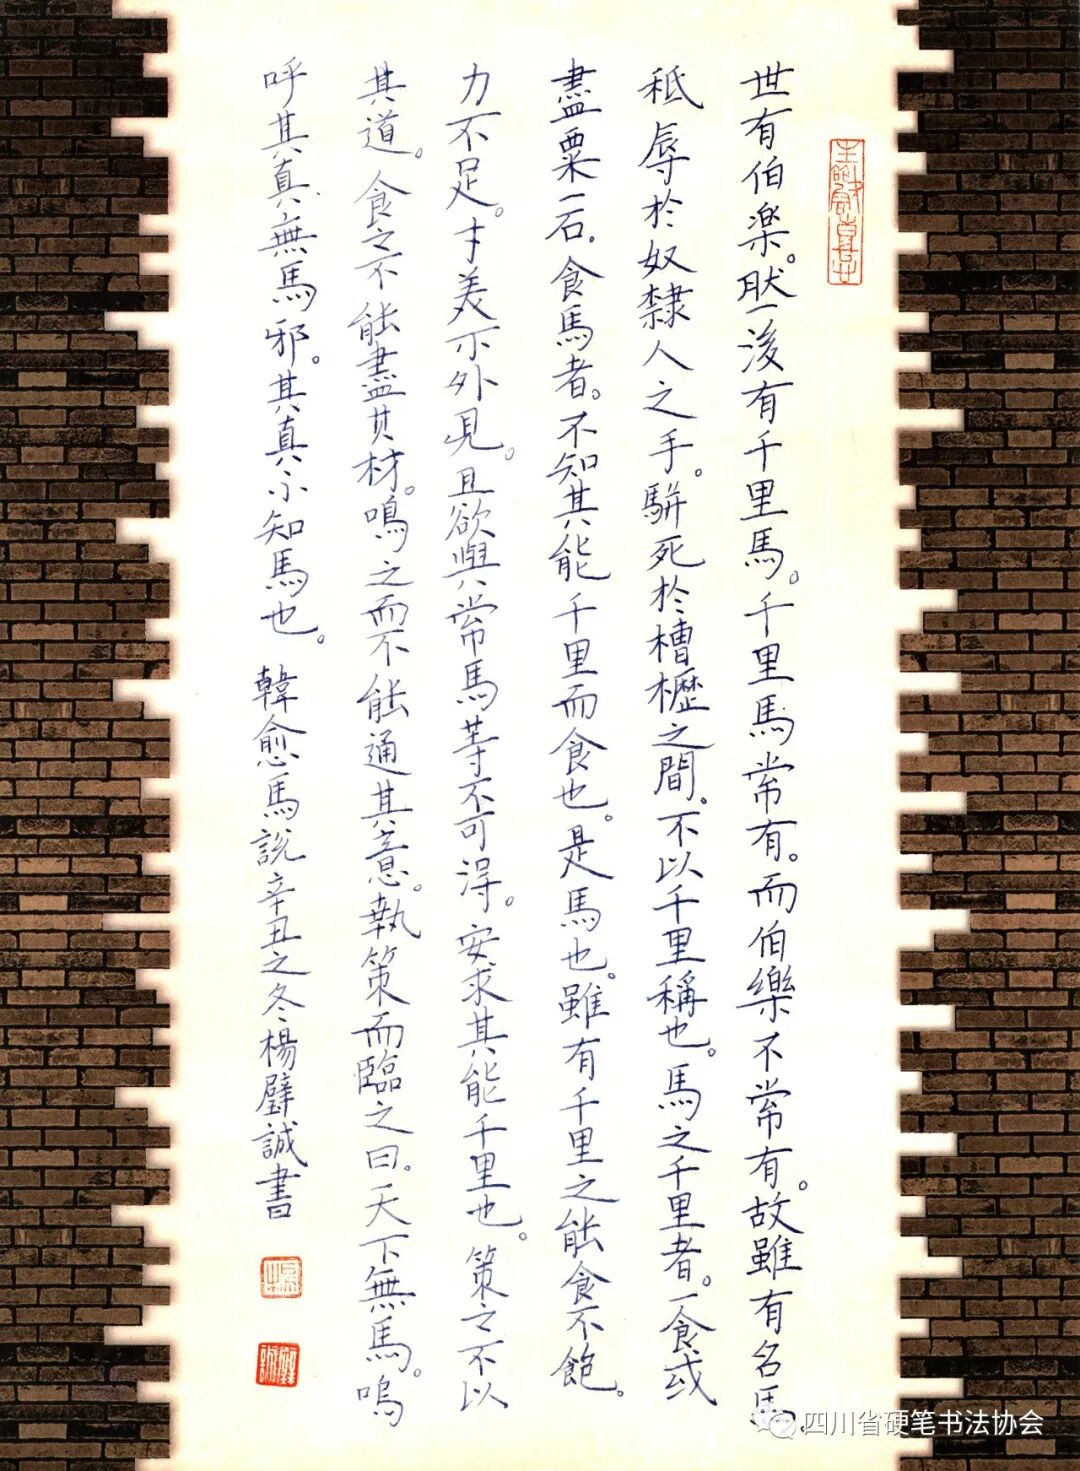 世有伯楽。然後有千里馬。千里馬常有。而伯樂不常有。故雖有名馬。
秖辱於奴隸人之手。駢死於槽櫪之間。不以千里稱也。馬之千里者。一食或
盡粟一石。食馬者。不知其能千里而食也。是馬也。雖有千里之能食不飽。
力不足。才美不外見。且欲與常馬等不可得。安求其能千里也。策之不以
其道。食之不能盡其材。鳴之而不能通其意。執策而臨之曰。天下無馬。嗚
呼其真無馬邪。其真不知馬也。韓愈馬說辛丑之冬楊璧誠書
四川省硬笔书法协会